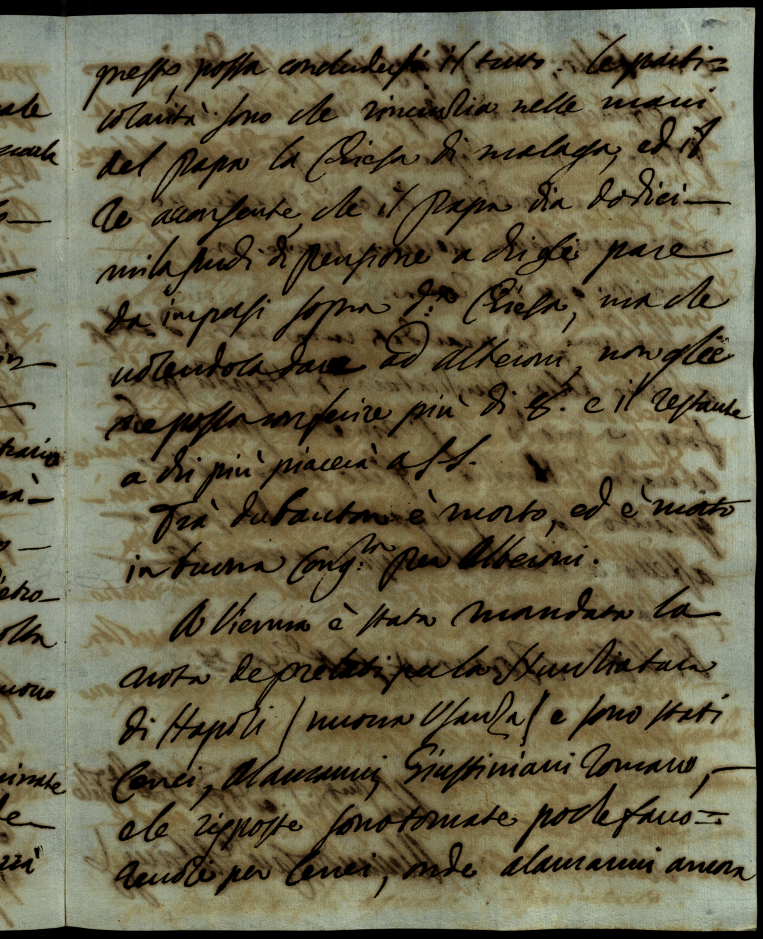 ale
questo, possa concludersi il tutto. le parti=
colarità sono che rinuntia nelle mani
del Papa la Chiesa di malaga, ed il
Re acconsente, che il Papa dia dodici
mila scudi di pensione a chi gli pare
da imporsi sopra d.ª Chiesa, ma che
volendola dare ad Alberoni, non gliè
ne possa conferire più di 8. e il restante
a chi più piacerà a S.S.
Frà dubanton è morto, ed è morto
in buona Cong.ra per Alberoni.
A Vienna è stata mandata la
nota de prelati per la Nunziatura
di Napoli (nuova Usanza) e sono stati
Cenci, Alamanni, Giustiniani Romano,
e le risposte sono tornate poche favo=
revoli per Cenci, onde Alamanni ancora